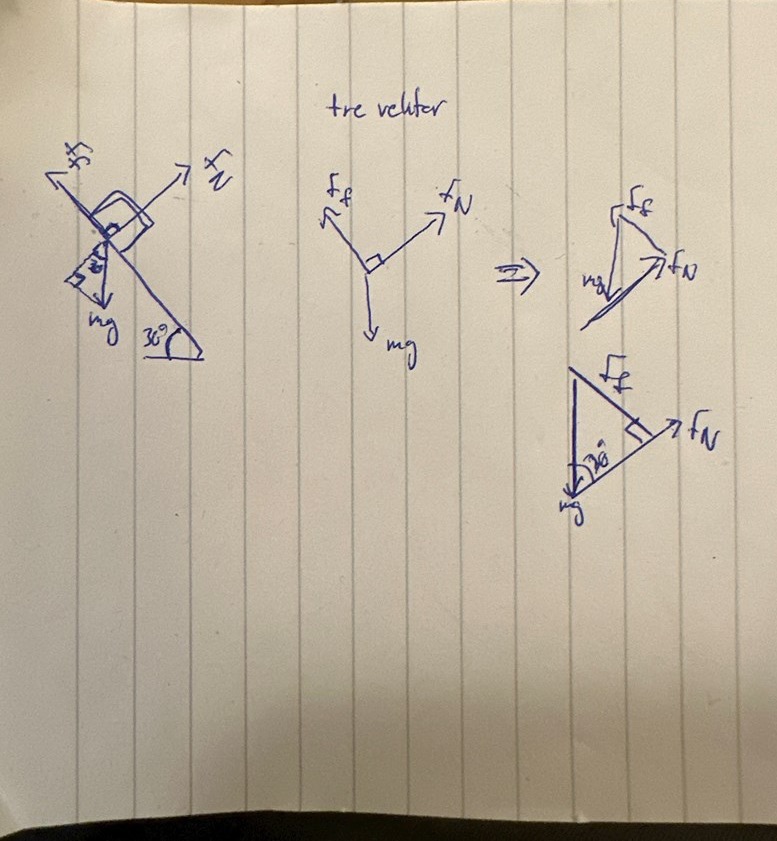 tre vektor
f_f
f_N
30°
mg
30°
f_f
f_N
mg
⇒
f_f
mg
f_N
f_f
f_N
30°
mg